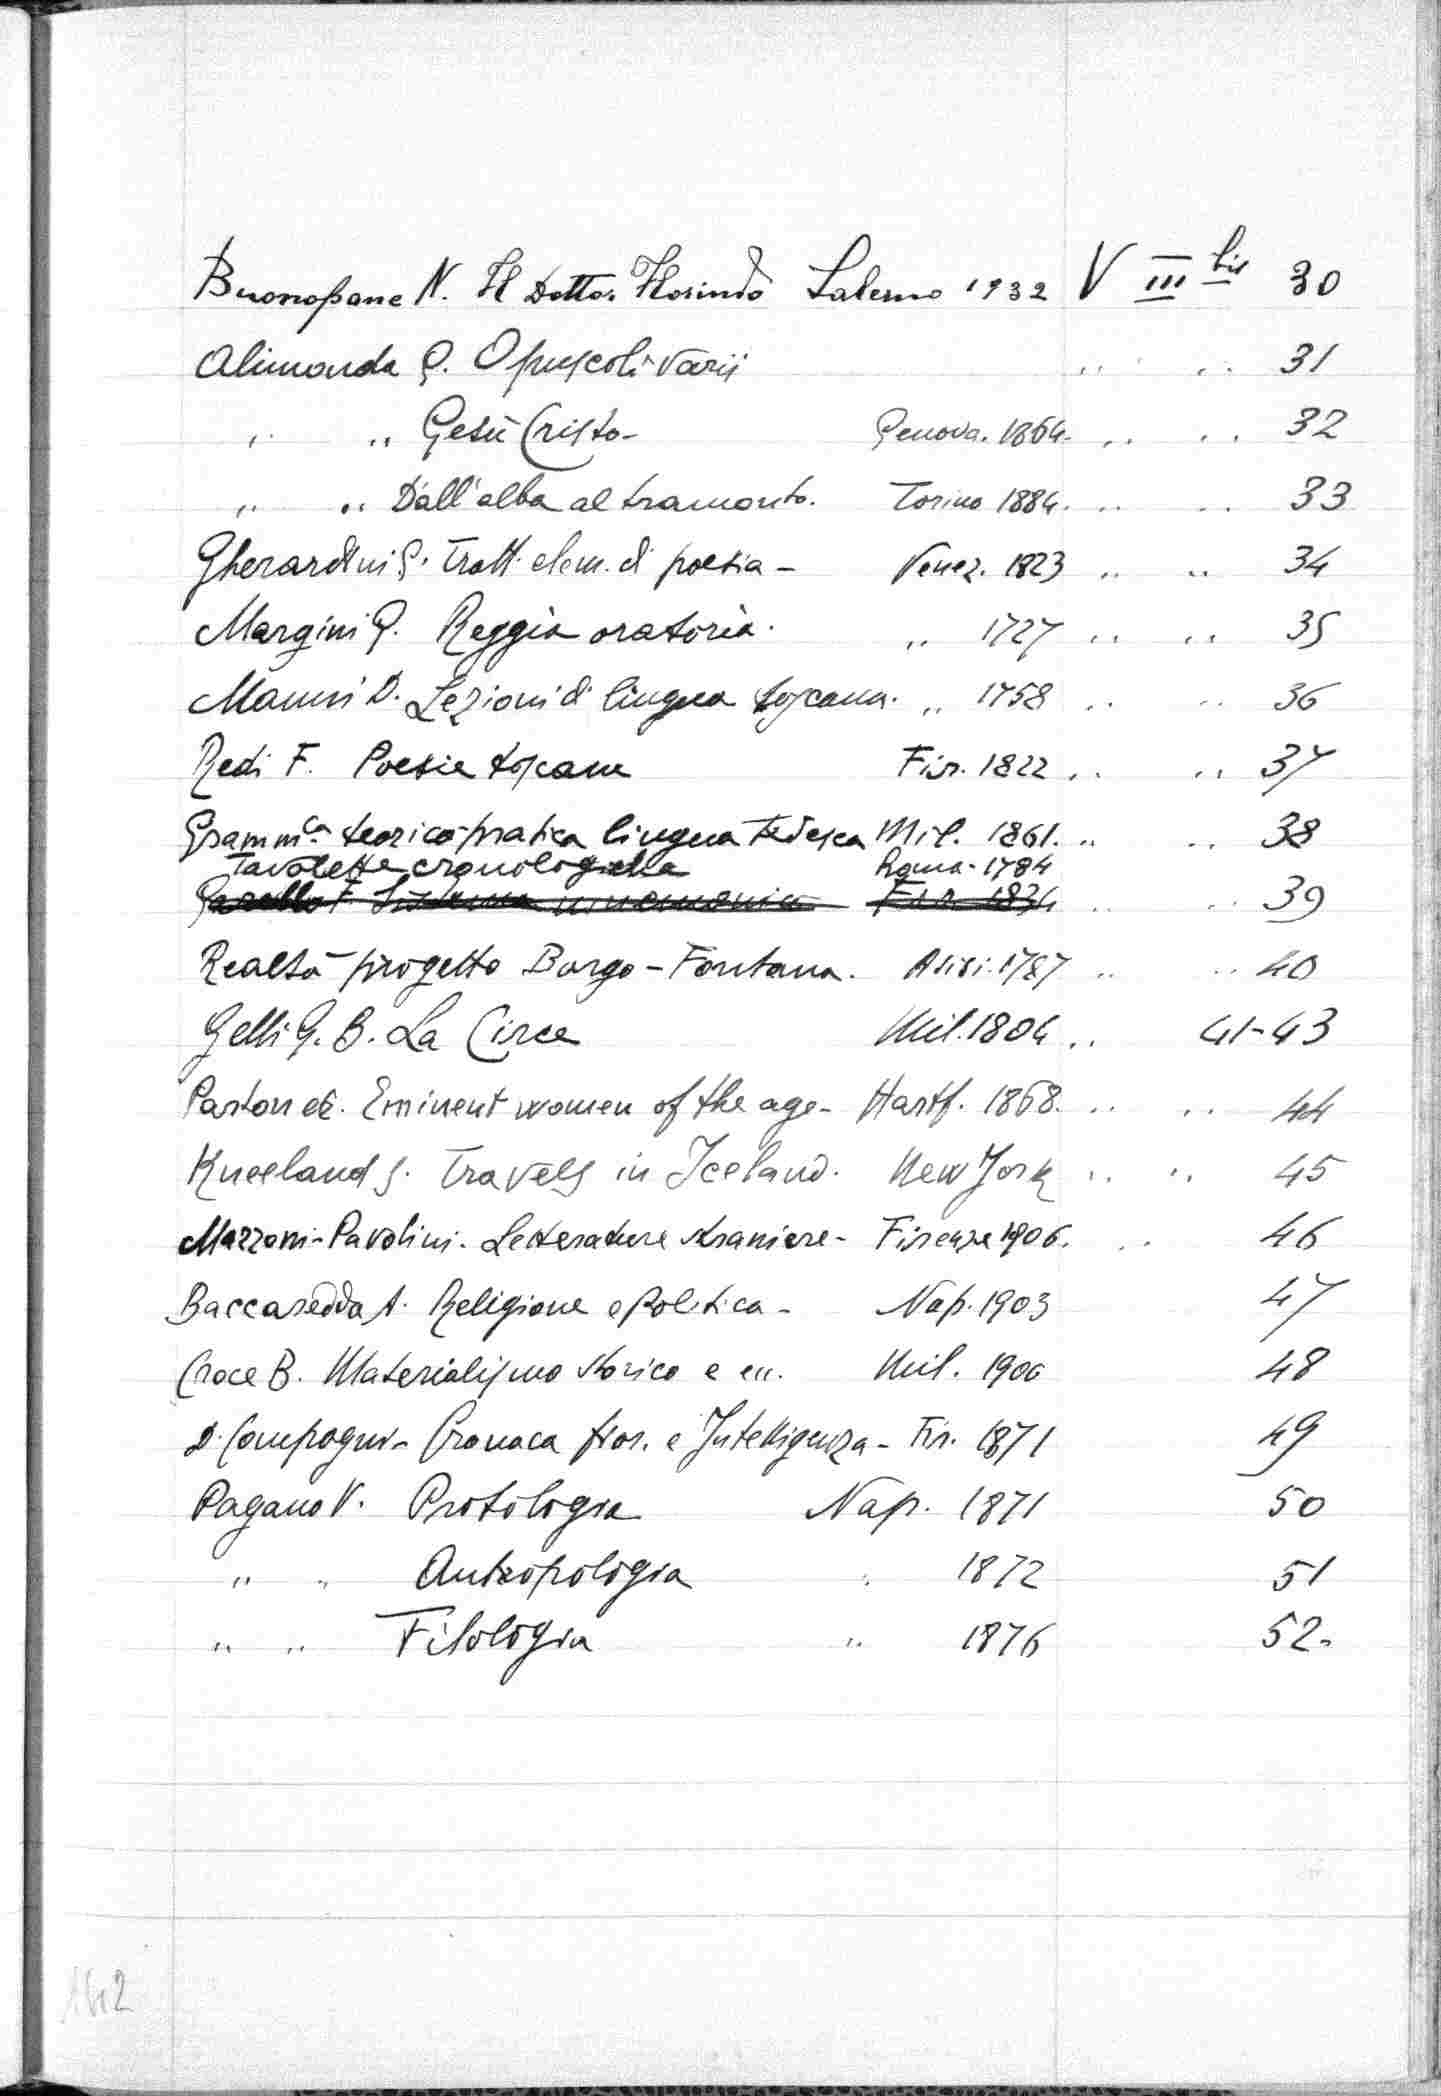 Buonopane N. Il Dottor Florindo Salerno 1932 V III bis 30
Alimonda G. Opuscoli varii " " 31
" " Gesù Cristo - Genova. 1864. " " 32
" " Dall'alba al tramonto. Torino 1884. " " 33
Gherardini G. Tratt. elem. di poesia - Venez. 1823 " " 34
Margini G. Reggia oratoria. " 1727 " " 35
Manni D. Lezioni di lingua toscana. " 1758 " " 36
Redi F. Poesie toscane Fir. 1822 " " 37
Gramm.ca teorico-pratica lingua Tedesca Mil. 1861. " " 38
Tavolette cronologiche Roma - 1784
F. Sistema mnemonico Fir. 1834 " " 39
Realtà progetto Borgo-Fontana. Asisi. 1787 " " 40
Gelli G. B. La Circe Mil. 1804 " 41-43
Parton ec. Eminent women of the age - Hartf. 1868. " " 44
Kneeland S. Travels in Iceland. New York " " 45
Mazzoni-Pavolini. Letterature straniere - Firenze 1906. " 46
Baccaredda A. Religione e politica - Nap. 1903 47
Croce B. Materialismo storico e ec. Mil. 1900 48
D. Compagni - Cronaca fior. e Intelligenza - Fir. 1871 49
Pagano V. Protologia Nap. 1871 50
" " Antropologia " 1872 51
" " Filologia " 1876 52-